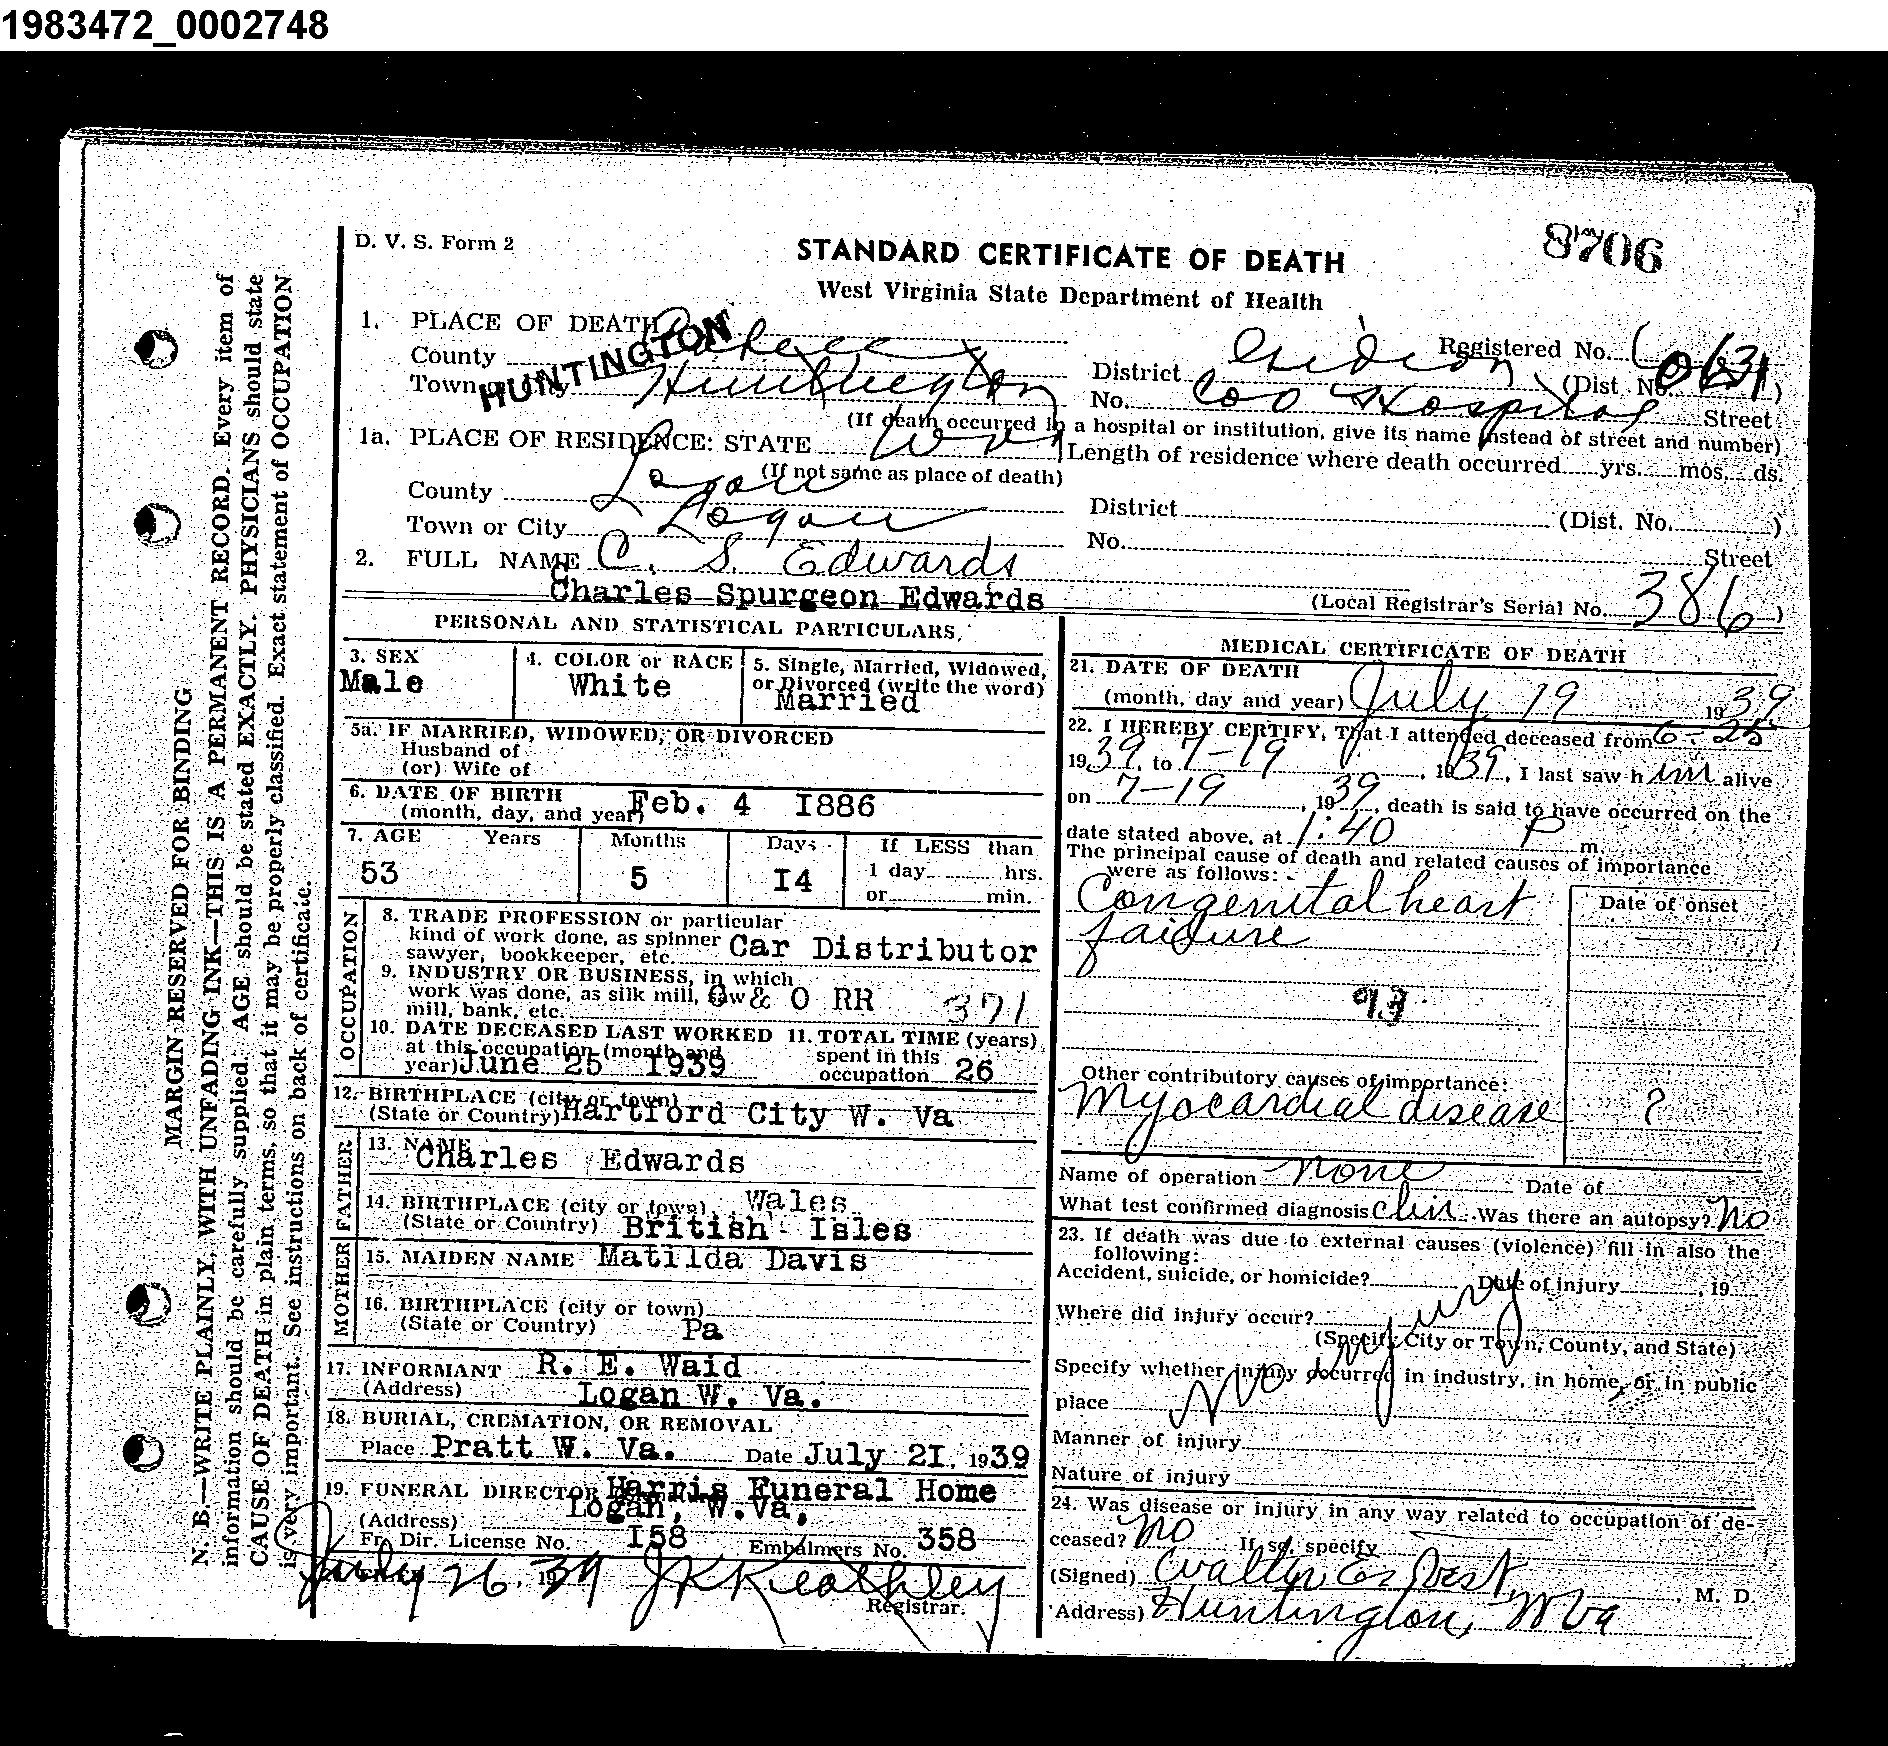 1983472_0002748
D. V. S. Form 2
8706
STANDARD CERTIFICATE OF DEATH
West Virginia State Department of Health
1. PLACE OF DEATH
County
HUNTINGTON
Town or City Huntington
Registered No.
District
(Dist. No. )
No. C&O Hospital Street
(If death occurred in a hospital or institution, give its name instead of street and number)
1a. PLACE OF RESIDENCE: STATE W Va
(If not same as place of death)
Length of residence where death occurred yrs. mos. ds.
County Logan
Town or City Logan
District (Dist. No. )
No. Street
2. FULL NAME C. S. Edwards
Charles Spurgeon Edwards
(Local Registrar's Serial No. 386)
PERSONAL AND STATISTICAL PARTICULARS
3. SEX
Male
4. COLOR or RACE
White
5. Single, Married, Widowed, or Divorced (write the word)
Married
5a. IF MARRIED, WIDOWED, OR DIVORCED
Husband of
(or) Wife of
6. DATE OF BIRTH
(month, day, and year) Feb. 4 1886
7. AGE Years Months Days If LESS than
53 5 14 1 day hrs.
or min.
OCCUPATION
8. TRADE PROFESSION or particular
kind of work done, as spinner
sawyer, bookkeeper, etc. Car Distributor
9. INDUSTRY OR BUSINESS, in which
work was done, as silk mill, saw
mill, bank, etc. C & O RR 371
10. DATE DECEASED LAST WORKED
at this occupation (month and
year) June 25 1939
11. TOTAL TIME (years)
spent in this
occupation 26
12. BIRTHPLACE (city or town)
(State or Country) Hartford City W. Va
FATHER
13. NAME
Charles Edwards
14. BIRTHPLACE (city or town) Wales
(State or Country) British Isles
MOTHER
15. MAIDEN NAME Matilda Davis
16. BIRTHPLACE (city or town)
(State or Country) Pa
17. INFORMANT R. E. Waid
(Address) Logan W. Va.
18. BURIAL, CREMATION, OR REMOVAL
Place Pratt W. Va. Date July 21, 1939
19. FUNERAL DIRECTOR Harris Funeral Home
Logan, W.Va.
(Address)
Fr. Dir. License No. 158 Embalmers No. 358
July 26, 1939 J K Keathley
Registrar.
MEDICAL CERTIFICATE OF DEATH
21. DATE OF DEATH
(month, day and year) July 19 1939
22. I HEREBY CERTIFY, That I attended deceased from 6-25
1939, to 7-19, 1939, I last saw him alive
on 7-19, 1939, death is said to have occurred on the
date stated above, at 1:40 P m.
The principal cause of death and related causes of importance
were as follows:
Date of onset
Congenital heart
failure
93
Other contributory causes of importance:
Myocardial disease ?
Name of operation none Date of
What test confirmed diagnosis clin Was there an autopsy? No
23. If death was due to external causes (violence) fill in also the
following:
Accident, suicide, or homicide? Date of injury , 19
Where did injury occur?
(Specify City or Town, County, and State)
Specify whether injury occurred in industry, in home, or in public
place
No injury
Manner of injury
Nature of injury
24. Was disease or injury in any way related to occupation of de-
ceased? No If so, specify
(Signed) Walter E. Vest, M. D.
(Address) Huntington, W Va
MARGIN RESERVED FOR BINDING
N. B.—WRITE PLAINLY, WITH UNFADING INK—THIS IS A PERMANENT RECORD. Every item of
information should be carefully supplied. AGE should be stated EXACTLY. PHYSICIANS should state
CAUSE OF DEATH in plain terms, so that it may be properly classified. Exact statement of OCCUPATION
is very important. See instructions on back of certificate.